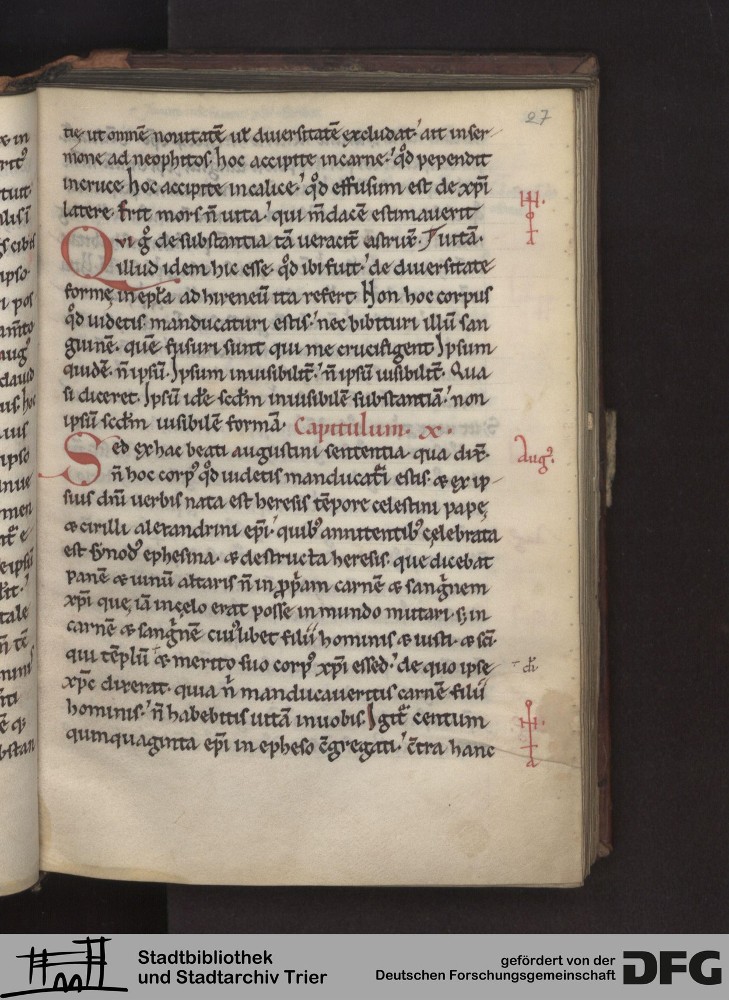 27
tię ut omnē nouitatē ul' diuersitatē excludat. ait in ser
mone ad neophitos. hoc accipite in carne. qd̄ pependit
in cruce. hoc accipite in calice. qd̄ effusum est de xp̄i
latere. Erit mors n̄ uita. qui m̄dacē estimauerit
Qui g̊ de substantia tā ueracit̄ astruẋ. uitā.
illud idem hic esse. qd̄ ibi fuit. de diuersitate
formę in epl̄a ad hireneū ita refert Non hoc corpus
qd̄ uidetis manducaturi estis. nec bibituri illū san
guinē. quē fusuri sunt qui me crucifigent Ipsum
quidē. n̄ ipsū. Ipsum inuisibilit̄. n̄ ipsū uisibilit̄. Qua
si diceret. Ipsū id̄e scd̄m inuisibilē substantiā. non
ipsū scd̄m uisibilē formā. Capitulum. x.
Sed ex hac beati augustini sententia qua dix̄.
n̄ hoc corp' qd̄ uidetis manducat̄i estis. & ex ip
sius dn̄i uerbis nata est heresis tēpore celestini papę
& cirilli alexandrini ep̄i. quib' annitentib' cęlebrata
est synod' ephesina. & destructa heresis. que dicebat
panē & uinū altaris n̄ in pp̄am carnē & sangⁱnem
xp̄i que iā in cęlo erat posse in mundo mutari. s; in
carnē & sangⁱnē cui'libet filii hominis & iusti. & sc̄i
qui tēplū & merito suo corp' xp̄i eēd. de quo ipse
xp̄c dixerat. quia n̄ manducaueritis carnē filii
hominis. n̄ habebitis uitā in uobis. Igit̄ centum
quinquaginta ep̄i in epheso c̄gregati. c̄tra hanc
Aug'.
Stadtbibliothek
und Stadtarchiv Trier
gefördert von der
Deutschen Forschungsgemeinschaft
DFG